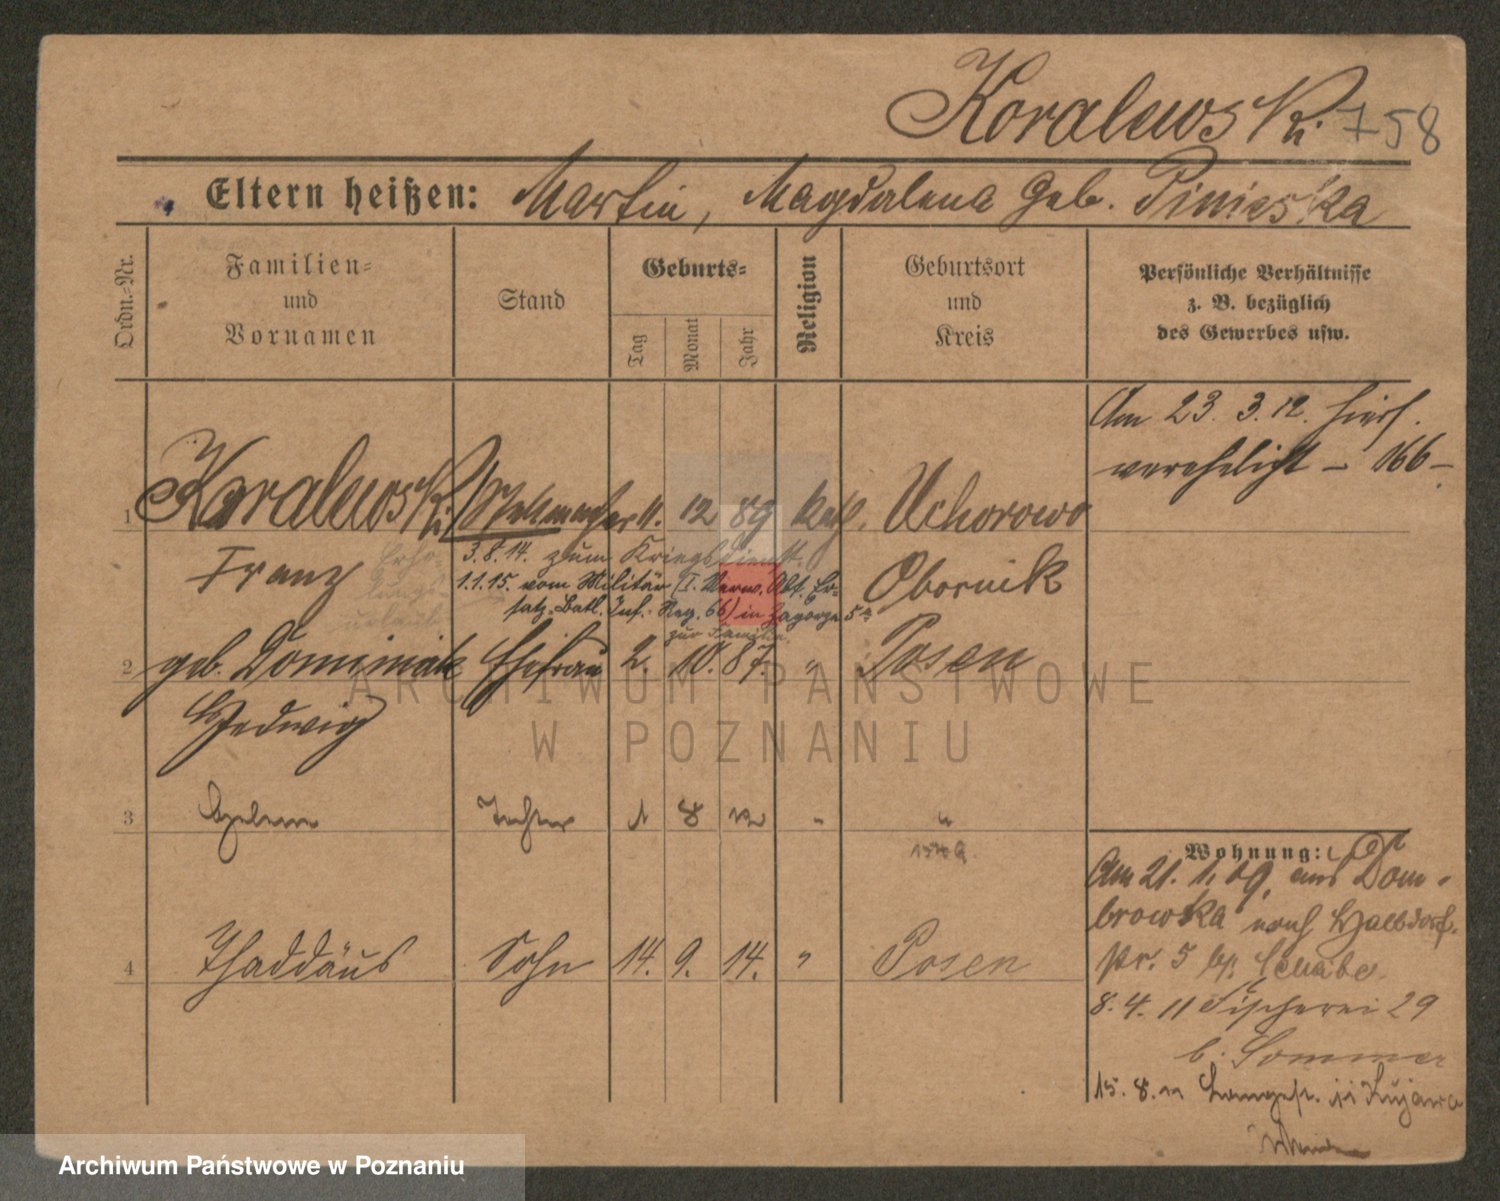 Koralewski 758
Eltern heißen: Martin, Magdalena geb. Pinieska
Ordn.-Nr.
Familien-
und
Vornamen
Stand
Geburts-
Tag
Monat
Jahr
Religion
Geburtsort
und
Kreis
Persönliche Verhältnisse
z. B. bezüglich
des Gewerbes usw.
Am 23. 3. 12. hier
verehelicht - 166 -
1 Koralewski Stellmacher 11. 12 89 kath. Uchorowo
Franz
3.8.14. zum Kriegsdienst.
Obornik
1.1.15. vom Militär (I. Verw. Abt. Er-
satz. Batl. Inf. Reg. 66) in Zagorze 5a
zur Familie.
Erho-
lungs-
urlaub
2 geb. Dominiak Ehefrau 2. 10. 87. " Posen
Hedwig
3 Helene Tochter 1 8 12 " "
4 Thaddäus Sohn 14. 9. 14. " Posen
Wohnung:
Am 21. 1. 09. aus Dom-
browka nach Halbdorf-
str. 5 b. Schabe.
8. 4. 11 Fischerei 29
b. Sommer
15. 8. Langestr. 11 Kujawa
ARCHIWUM PAŃSTWOWE
W POZNANIU
Archiwum Państwowe w Poznaniu